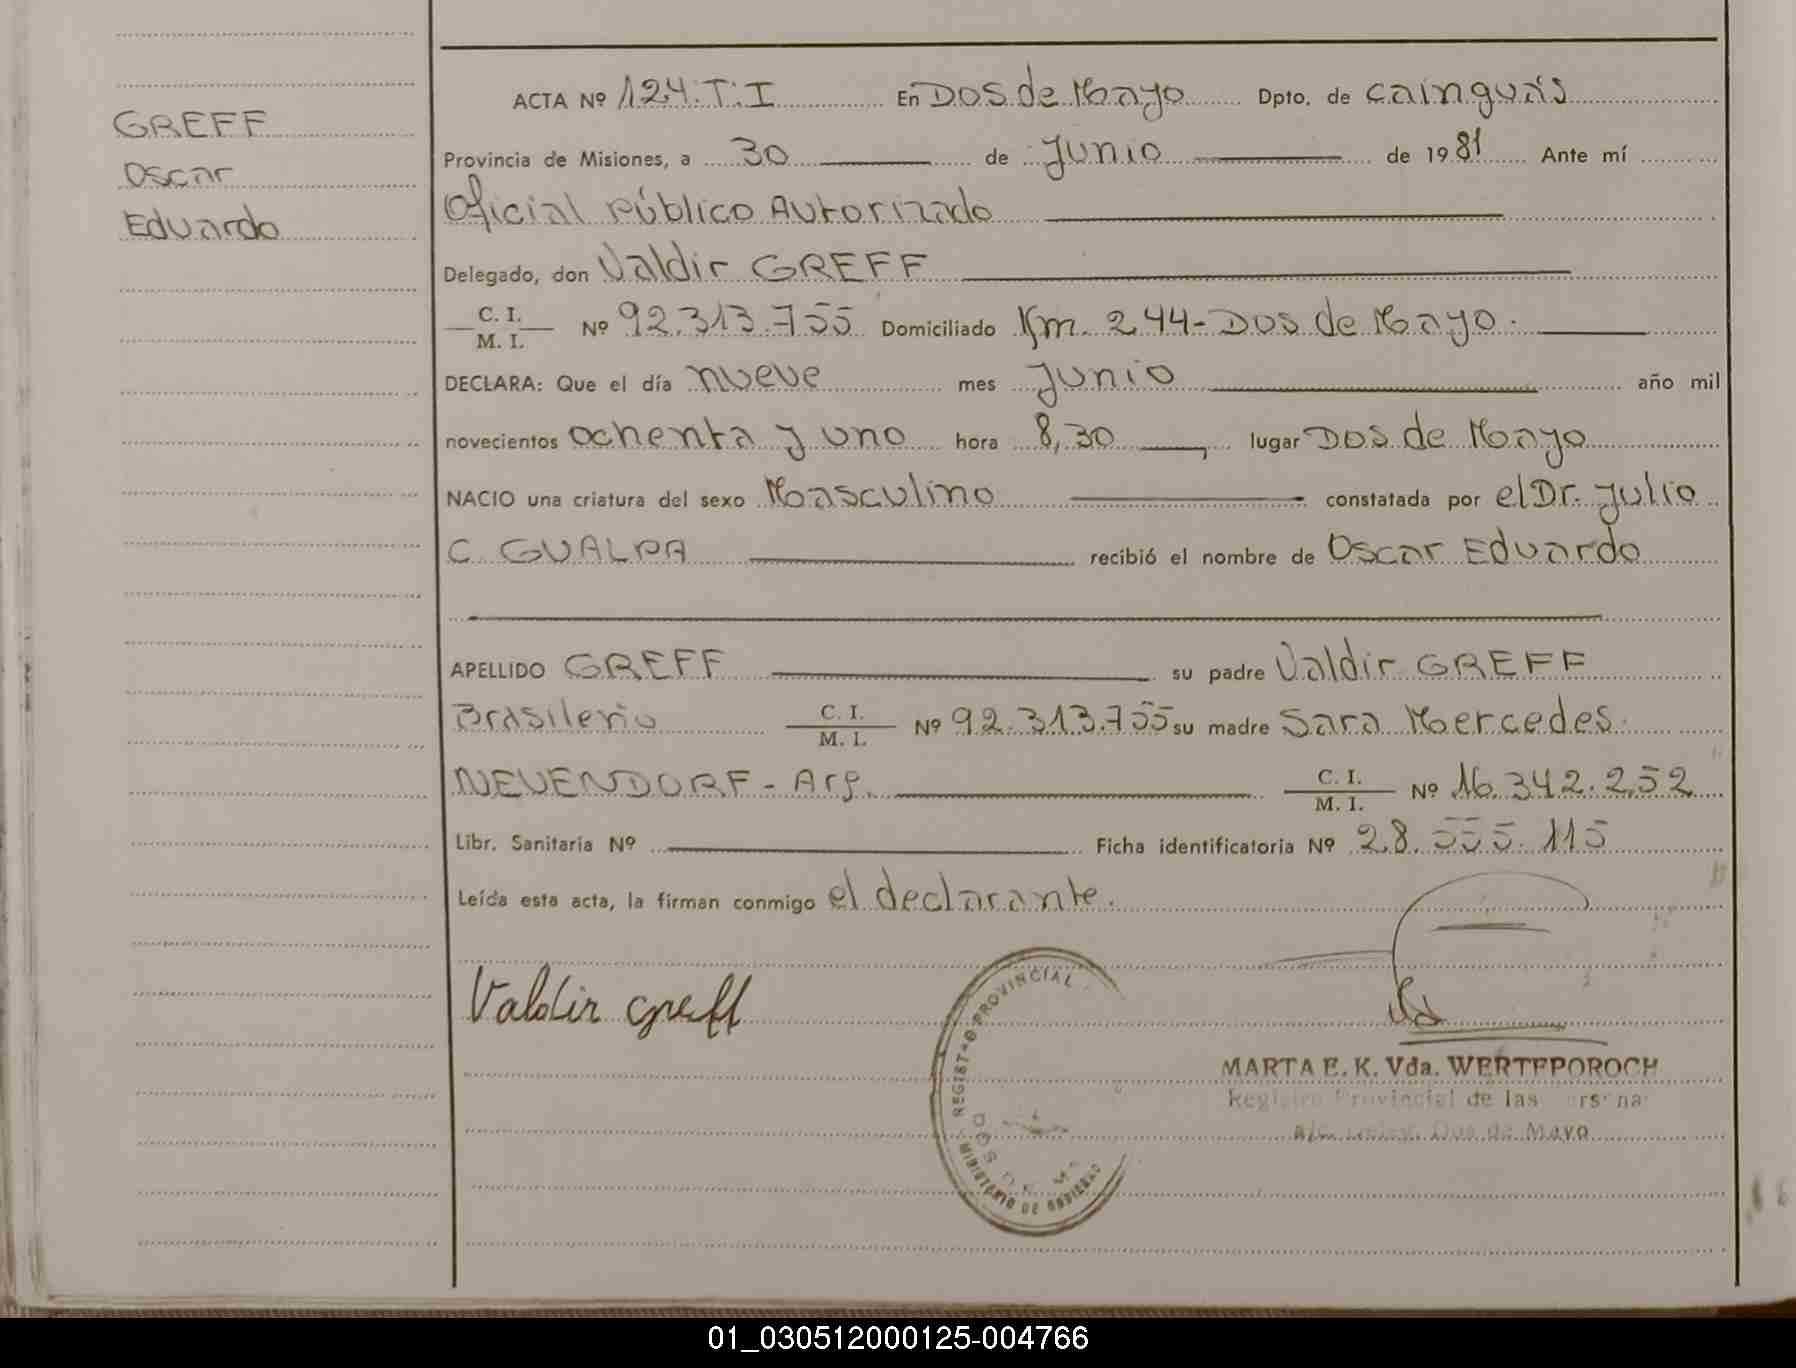 GREFF
Oscar
Eduardo
ACTA Nº 124.T:I En Dos de Mayo Dpto. de cainguás
Provincia de Misiones, a 30 de Junio de 1981 Ante mí
Oficial Público Autorizado
Delegado, don Valdir GREFF
C. I.
M. I.
Nº 92.313.755 Domiciliado Km. 244-Dos de Mayo.
DECLARA: Que el día nueve mes Junio año mil
novecientos ochenta y uno hora 8,30 lugar Dos de Mayo
NACIO una criatura del sexo Masculino constatada por el Dr. Julio
C. GUALPA recibió el nombre de Oscar Eduardo
APELLIDO GREFF su padre Valdir GREFF
Brasilerio C. I.
M. I.
Nº 92.313.755 su madre Sara Mercedes.
NEUENDORF - Arg. C. I.
M. I.
Nº 16.342.252
Libr. Sanitaria Nº Ficha identificatoria Nº 28.555.115
Leída esta acta, la firman conmigo el declarante.
Valdir Greff
REGISTRO PROVINCIAL
MINISTERIO DE GOBIERNO
MARTA E. K. Vda. WERTEPOROCH
Registro Provincial de las
Dos de Mayo
01_030512000125-004766